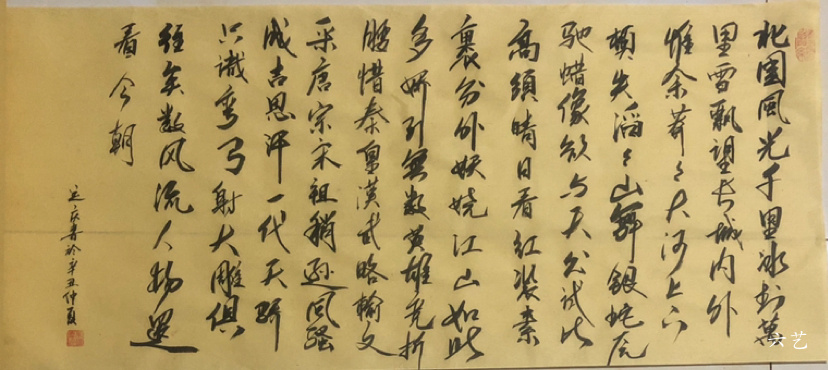 北國風光千里冰封萬
里雪飄望长城内外
惟余莽々大河上下
頓失滔々山舞银蛇原
驰蜡像欲与天公试比
高須晴日看红装素
裹分外妖娆江山如此
多娇引無数英雄竞折
腰惜秦皇漢武略输文
采唐宗宋祖稍逊风骚
成吉思汗一代天骄
只識弯弓射大雕俱
往矣数风流人物還
看今朝
於辛丑仲夏
艺